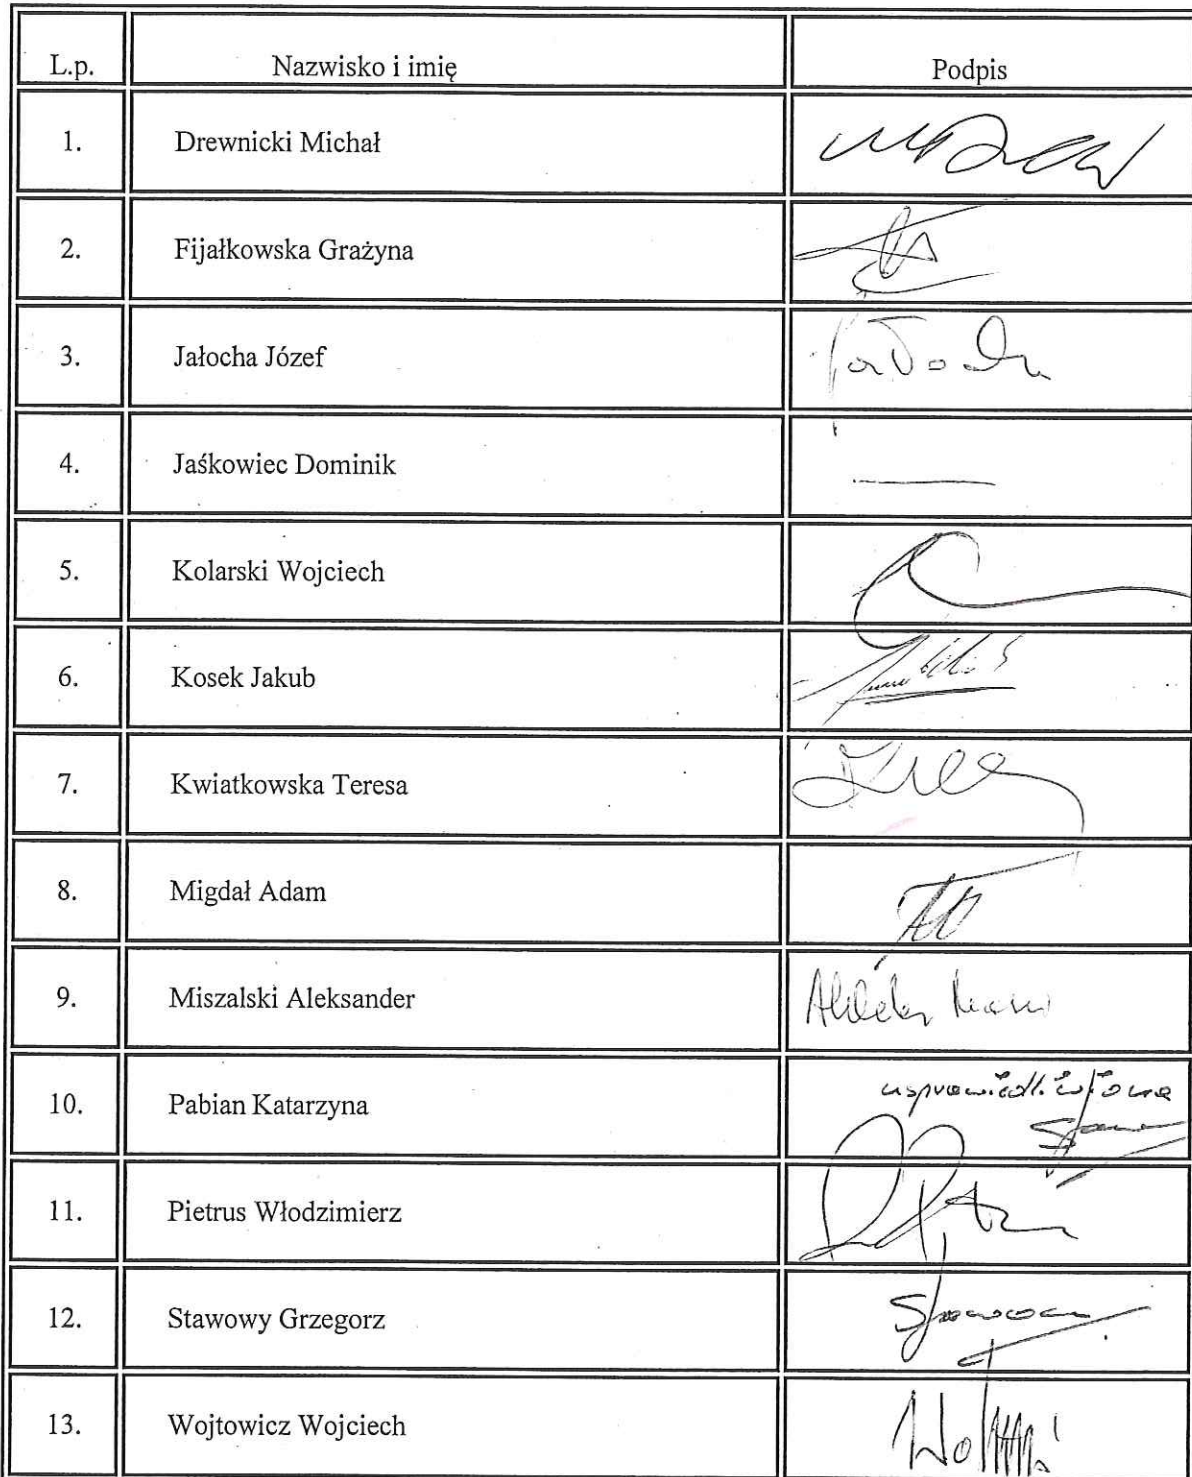 L.p. Nazwisko i imię Podpis
1. Drewnicki Michał
2. Fijałkowska Grażyna
3. Jałocha Józef Jałocha
4. Jaśkowiec Dominik —
5. Kolarski Wojciech
6. Kosek Jakub
7. Kwiatkowska Teresa
8. Migdał Adam
9. Miszalski Aleksander
10. Pabian Katarzyna usprawiedliwiona
11. Pietrus Włodzimierz
12. Stawowy Grzegorz
13. Wojtowicz Wojciech